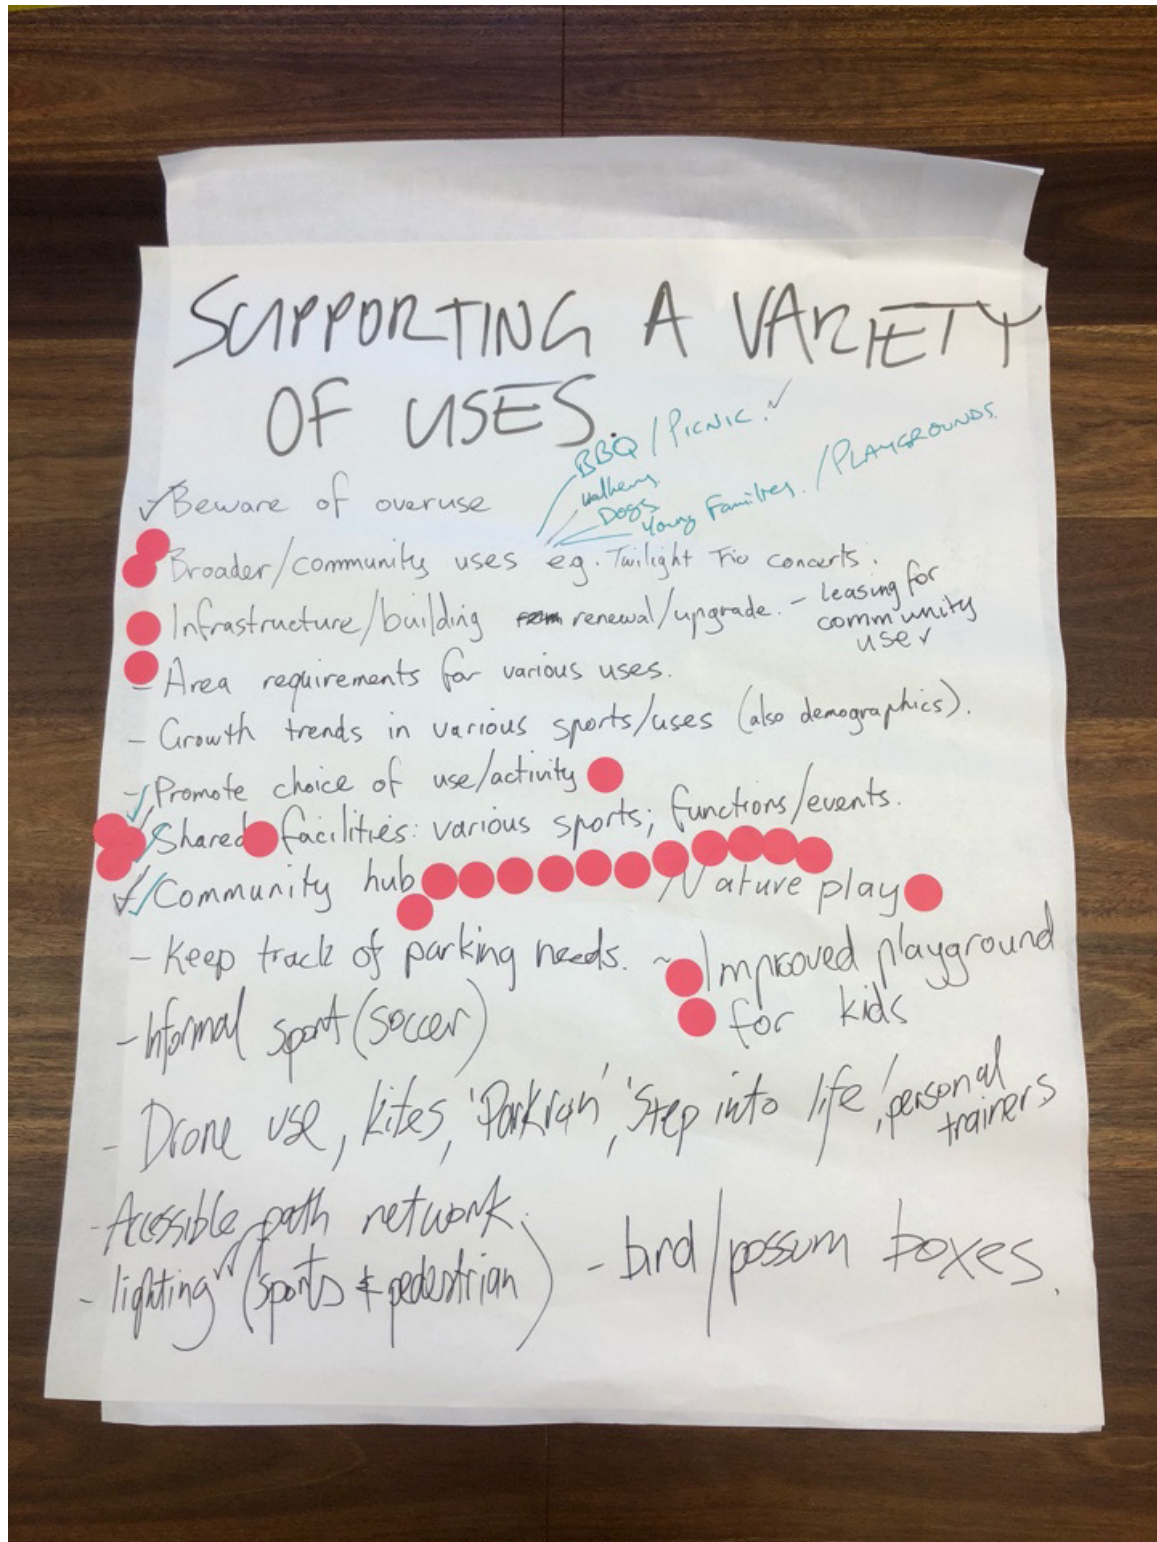 SUPPORTING A VARIETY
OF USES.
BBQ / PICNIC. ✓
walkers.
DOGS
Young Families. / PLAYGROUNDS.
✓ Beware of overuse
Broader/community uses eg. Twilight Trio concerts.
Infrastructure/building renewal/upgrade. - leasing for
community
use ✓
- Area requirements for various uses.
- Growth trends in various sports/uses (also demographics).
- Promote choice of use/activity
Shared facilities: various sports; functions/events.
Community hub
/Nature play
- Keep track of parking needs.
- Improved playground
for kids
- Informal sport (soccer)
- Drone use, kites, 'Parkrun', 'Step into life', personal
trainers
- Accessible path network.
- lighting ✓✓ (sports & pedestrian)
- bird/possum boxes.